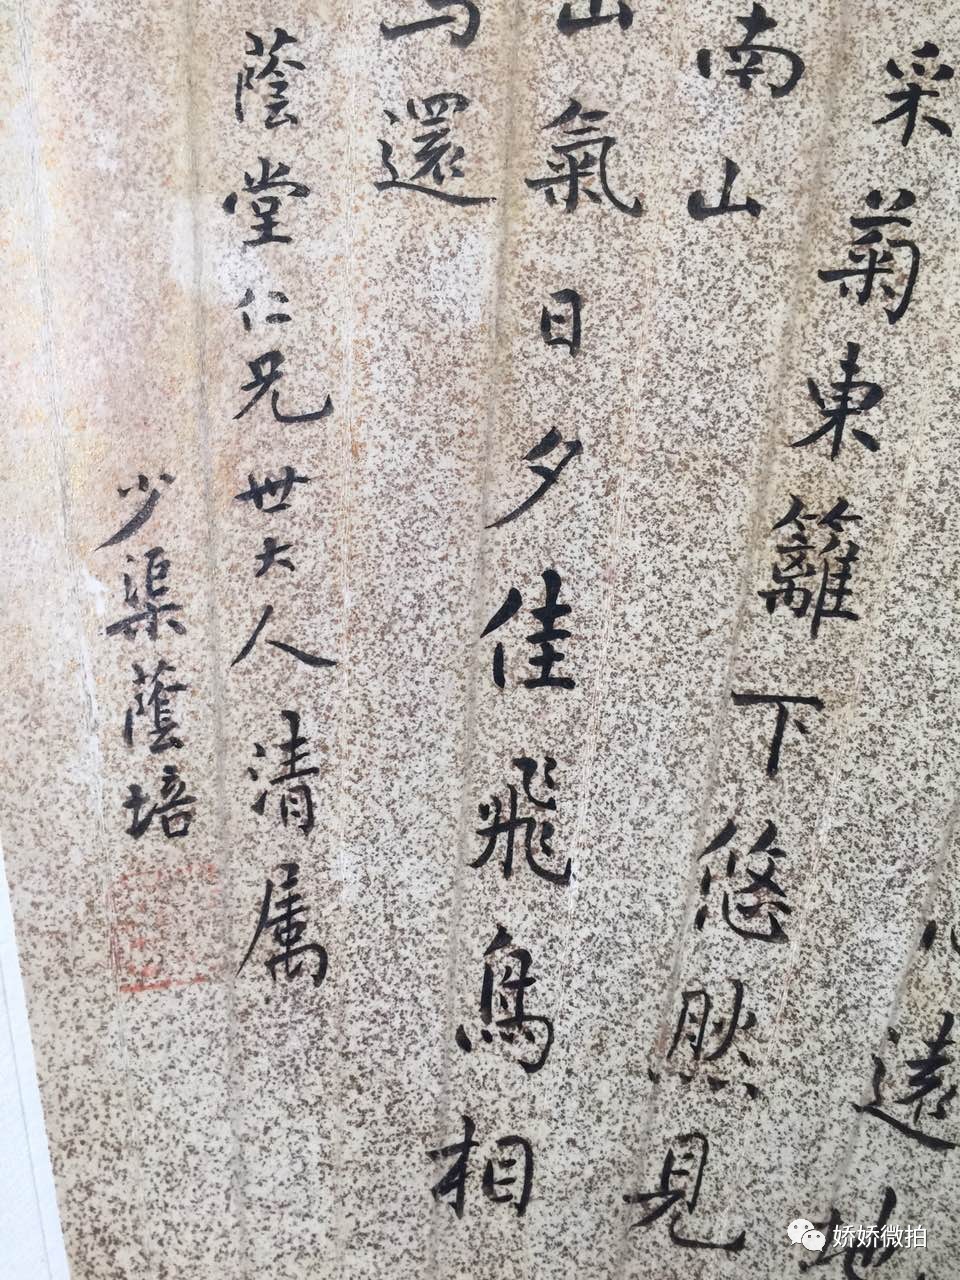 遠地
采菊東籬下悠然見
南山
山氣日夕佳飛鳥相
与還
蔭堂仁兄世大人清属
少渠蔭培
娇娇微拍